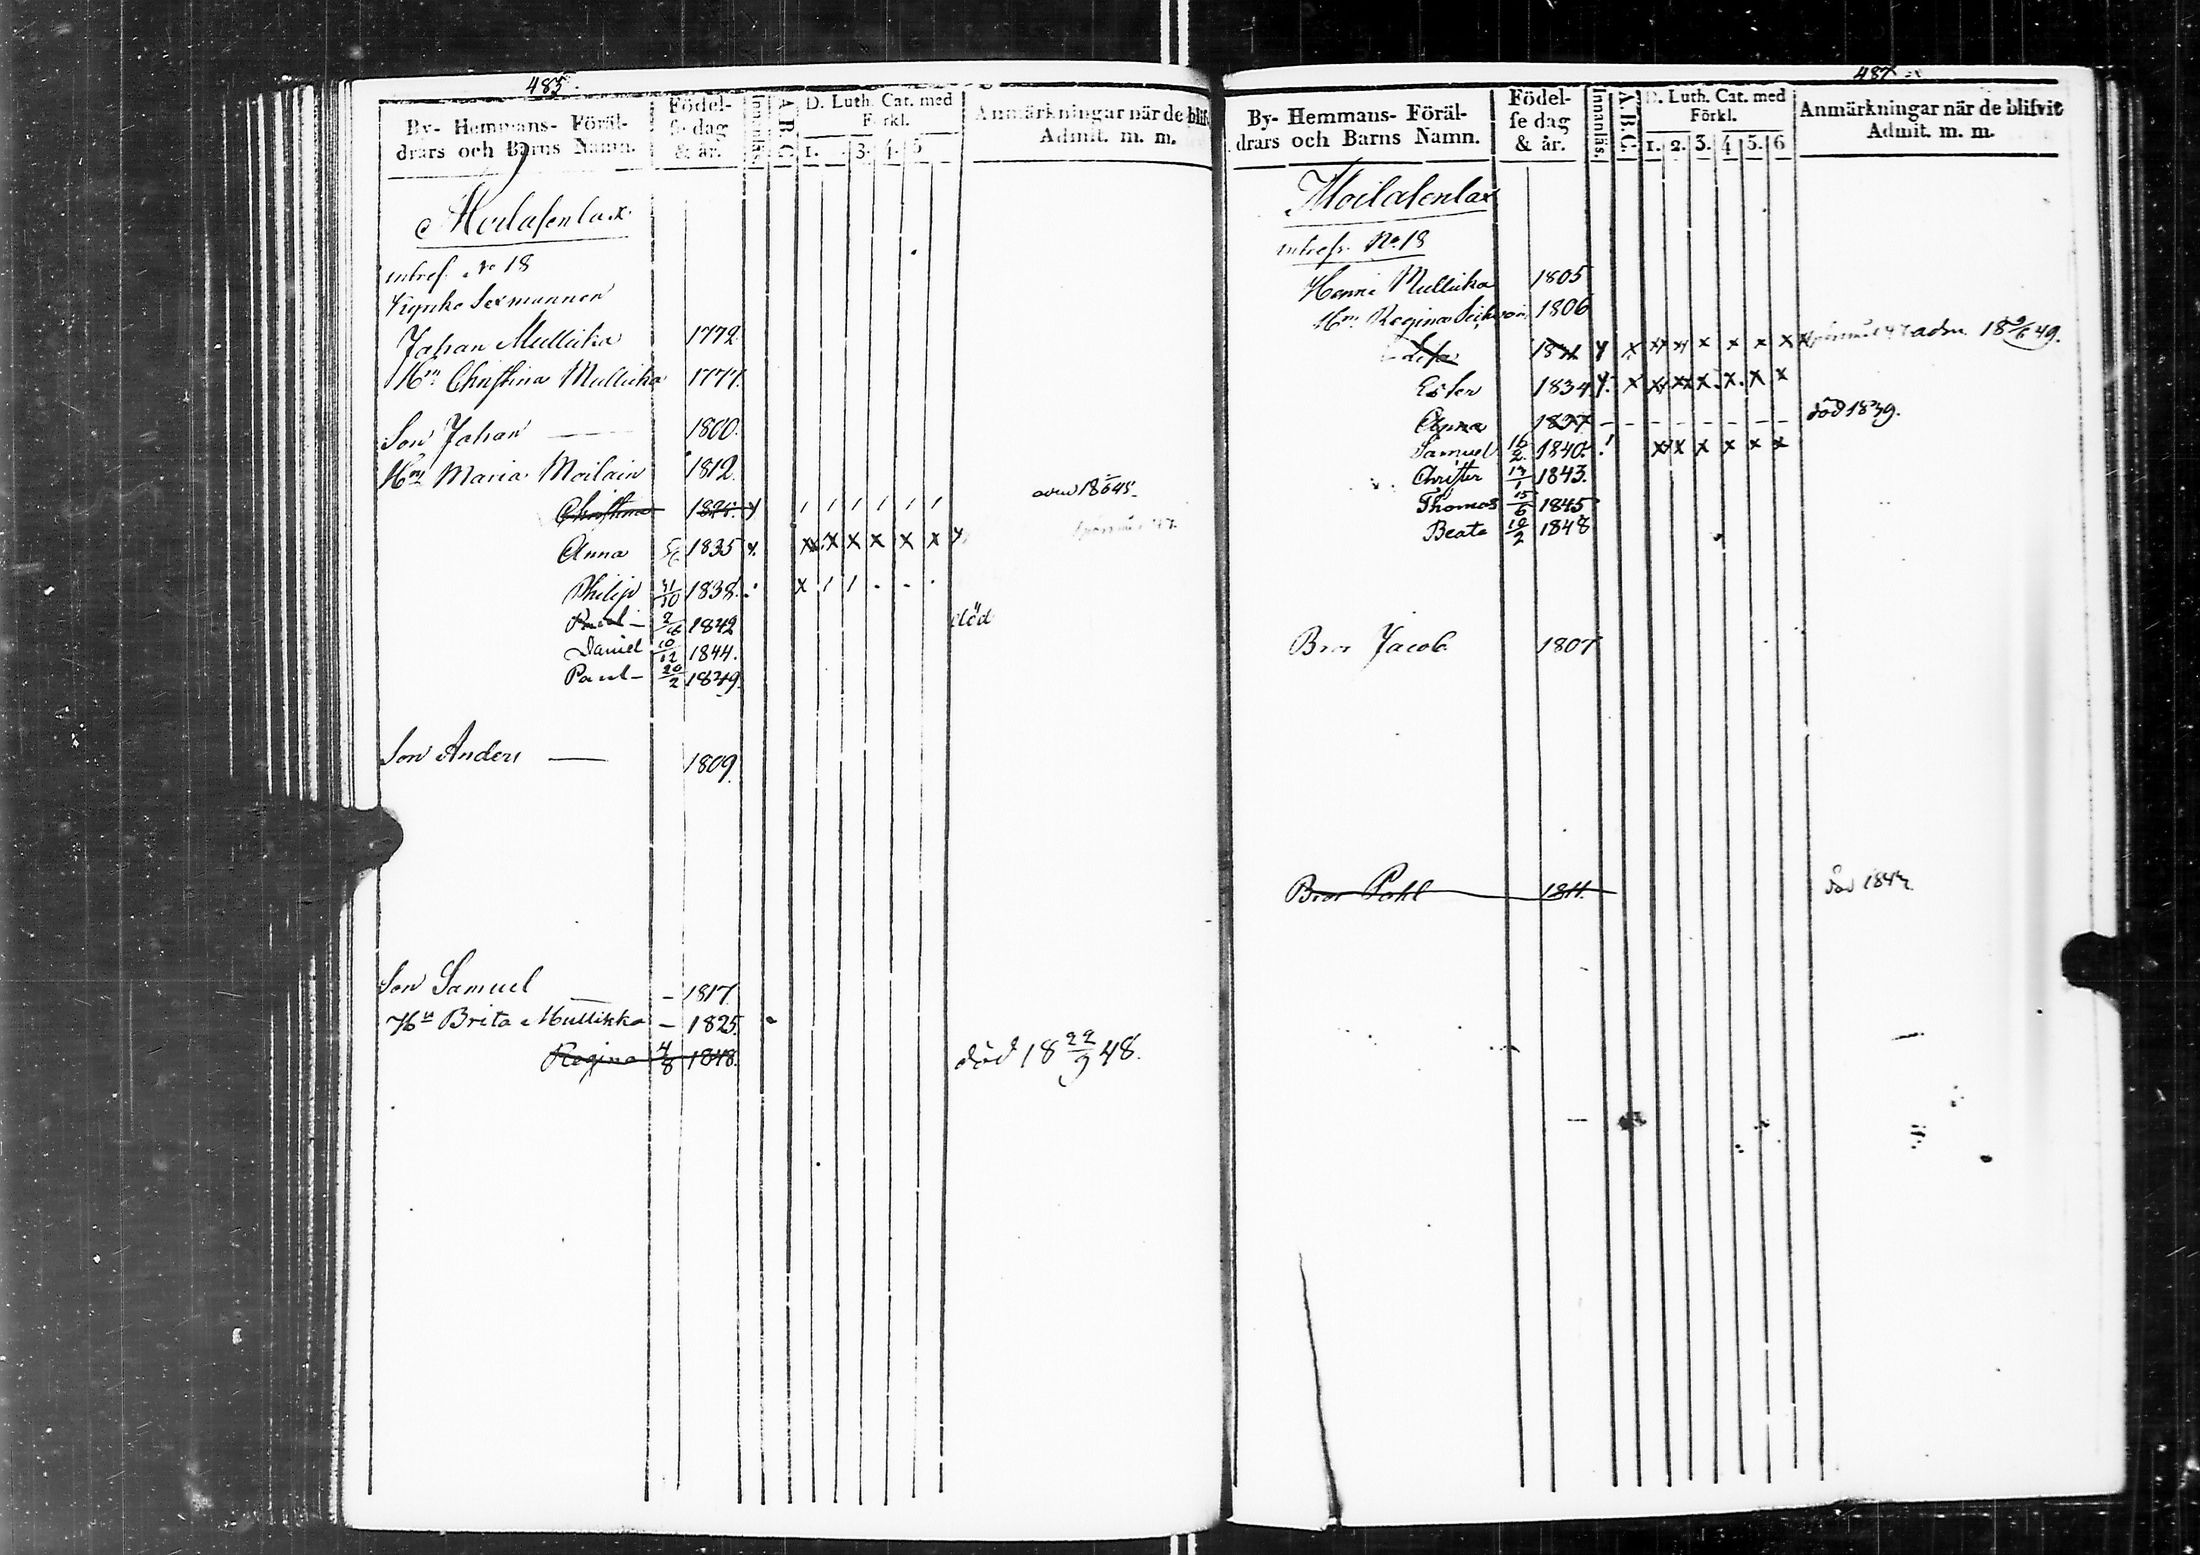 485.
By- Hemmans- Föräl-
drars och Barns Namn.
Födel-
se dag
& år.
Innanläs.
A.B.C.
D. Luth. Cat. med
Förkl.
1. 3. 4. 5
Anmärkningar när de blif
Admit. m. m.
Moilasenlax
intres. No 18
Johan Mullikka 1772
Hu Christina Mullikka 1777.
Son Johan — 1800.
Hu Maria Moilain 1812.
Christina 1828.
Anna 1835
Philip 31/10 1838.
Paul 1842 död
Daniel 10/12 1844.
Paul 20/2 1849.
Son Anders — 1809.
Son Samuel — 1817.
Hu Brita Mullikka — 1825.
Regina 4/8 1848. död 18 22/9 48.
487
By- Hemmans- Föräl-
drars och Barns Namn.
Födel-
se dag
& år.
Innanläs.
A.B.C.
D. Luth. Cat. med
Förkl.
1. 2. 3. 4 5. 6
Anmärkningar när de blifvit
Admit. m. m.
Moilasenlax
intress. No. 18
Hanni Mullikka 1805
Hu Regina 1806
Lisa 1831 adm. 49.
Ester 1834
Anna 1837 död 1839.
Samuel 16/2 1840.
Christer 1843.
Thomas 15/6 1845
Beata 1848
Bror Jacob 1807
Bror Pohl 1811. död